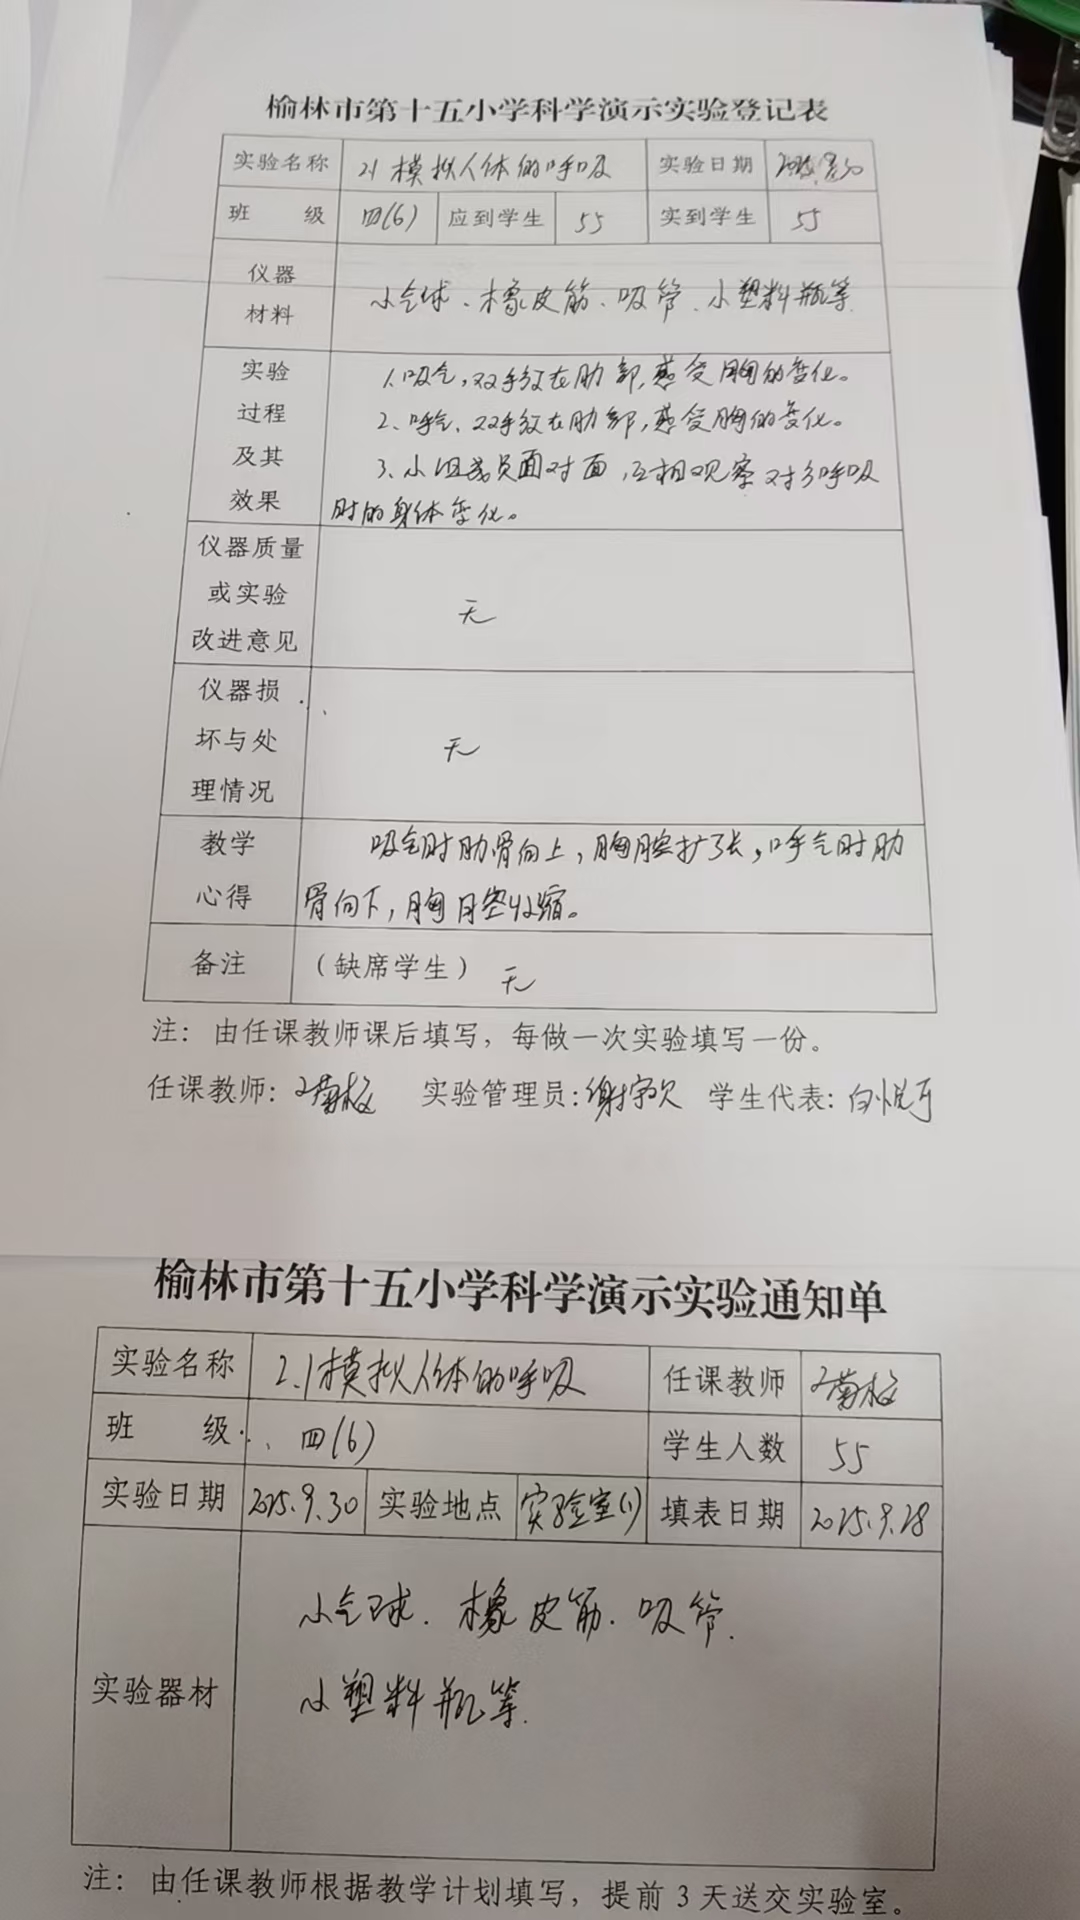 榆林市第十五小学科学演示实验登记表
实验名称 2.1模拟人体的呼吸 实验日期 2025.9.30
班 级 四(6) 应到学生 55 实到学生 55
仪器材料 小气球、橡皮筋、吸管、小塑料瓶等
实验过程及其效果 1.吸气,双手放在肋部,感受胸的变化。
2、呼气、双手放在肋部,感受胸的变化。
3、小组成员面对面,互相观察对方呼吸
时的身体变化。
仪器质量或实验改进意见 无
仪器损坏与处理情况 无
教学心得 吸气时肋骨向上,胸腔扩张,呼气时肋
骨向下,胸腔收缩。
备注 (缺席学生) 无
注:由任课教师课后填写,每做一次实验填写一份。
任课教师: 实验管理员: 学生代表:
榆林市第十五小学科学演示实验通知单
实验名称 2.1模拟人体的呼吸 任课教师
班 级 四(6) 学生人数 55
实验日期 2025.9.30 实验地点 实验室(1) 填表日期 2025.9.28
实验器材 小气球、橡皮筋、吸管、
小塑料瓶等.
注:由任课教师根据教学计划填写,提前3天送交实验室。